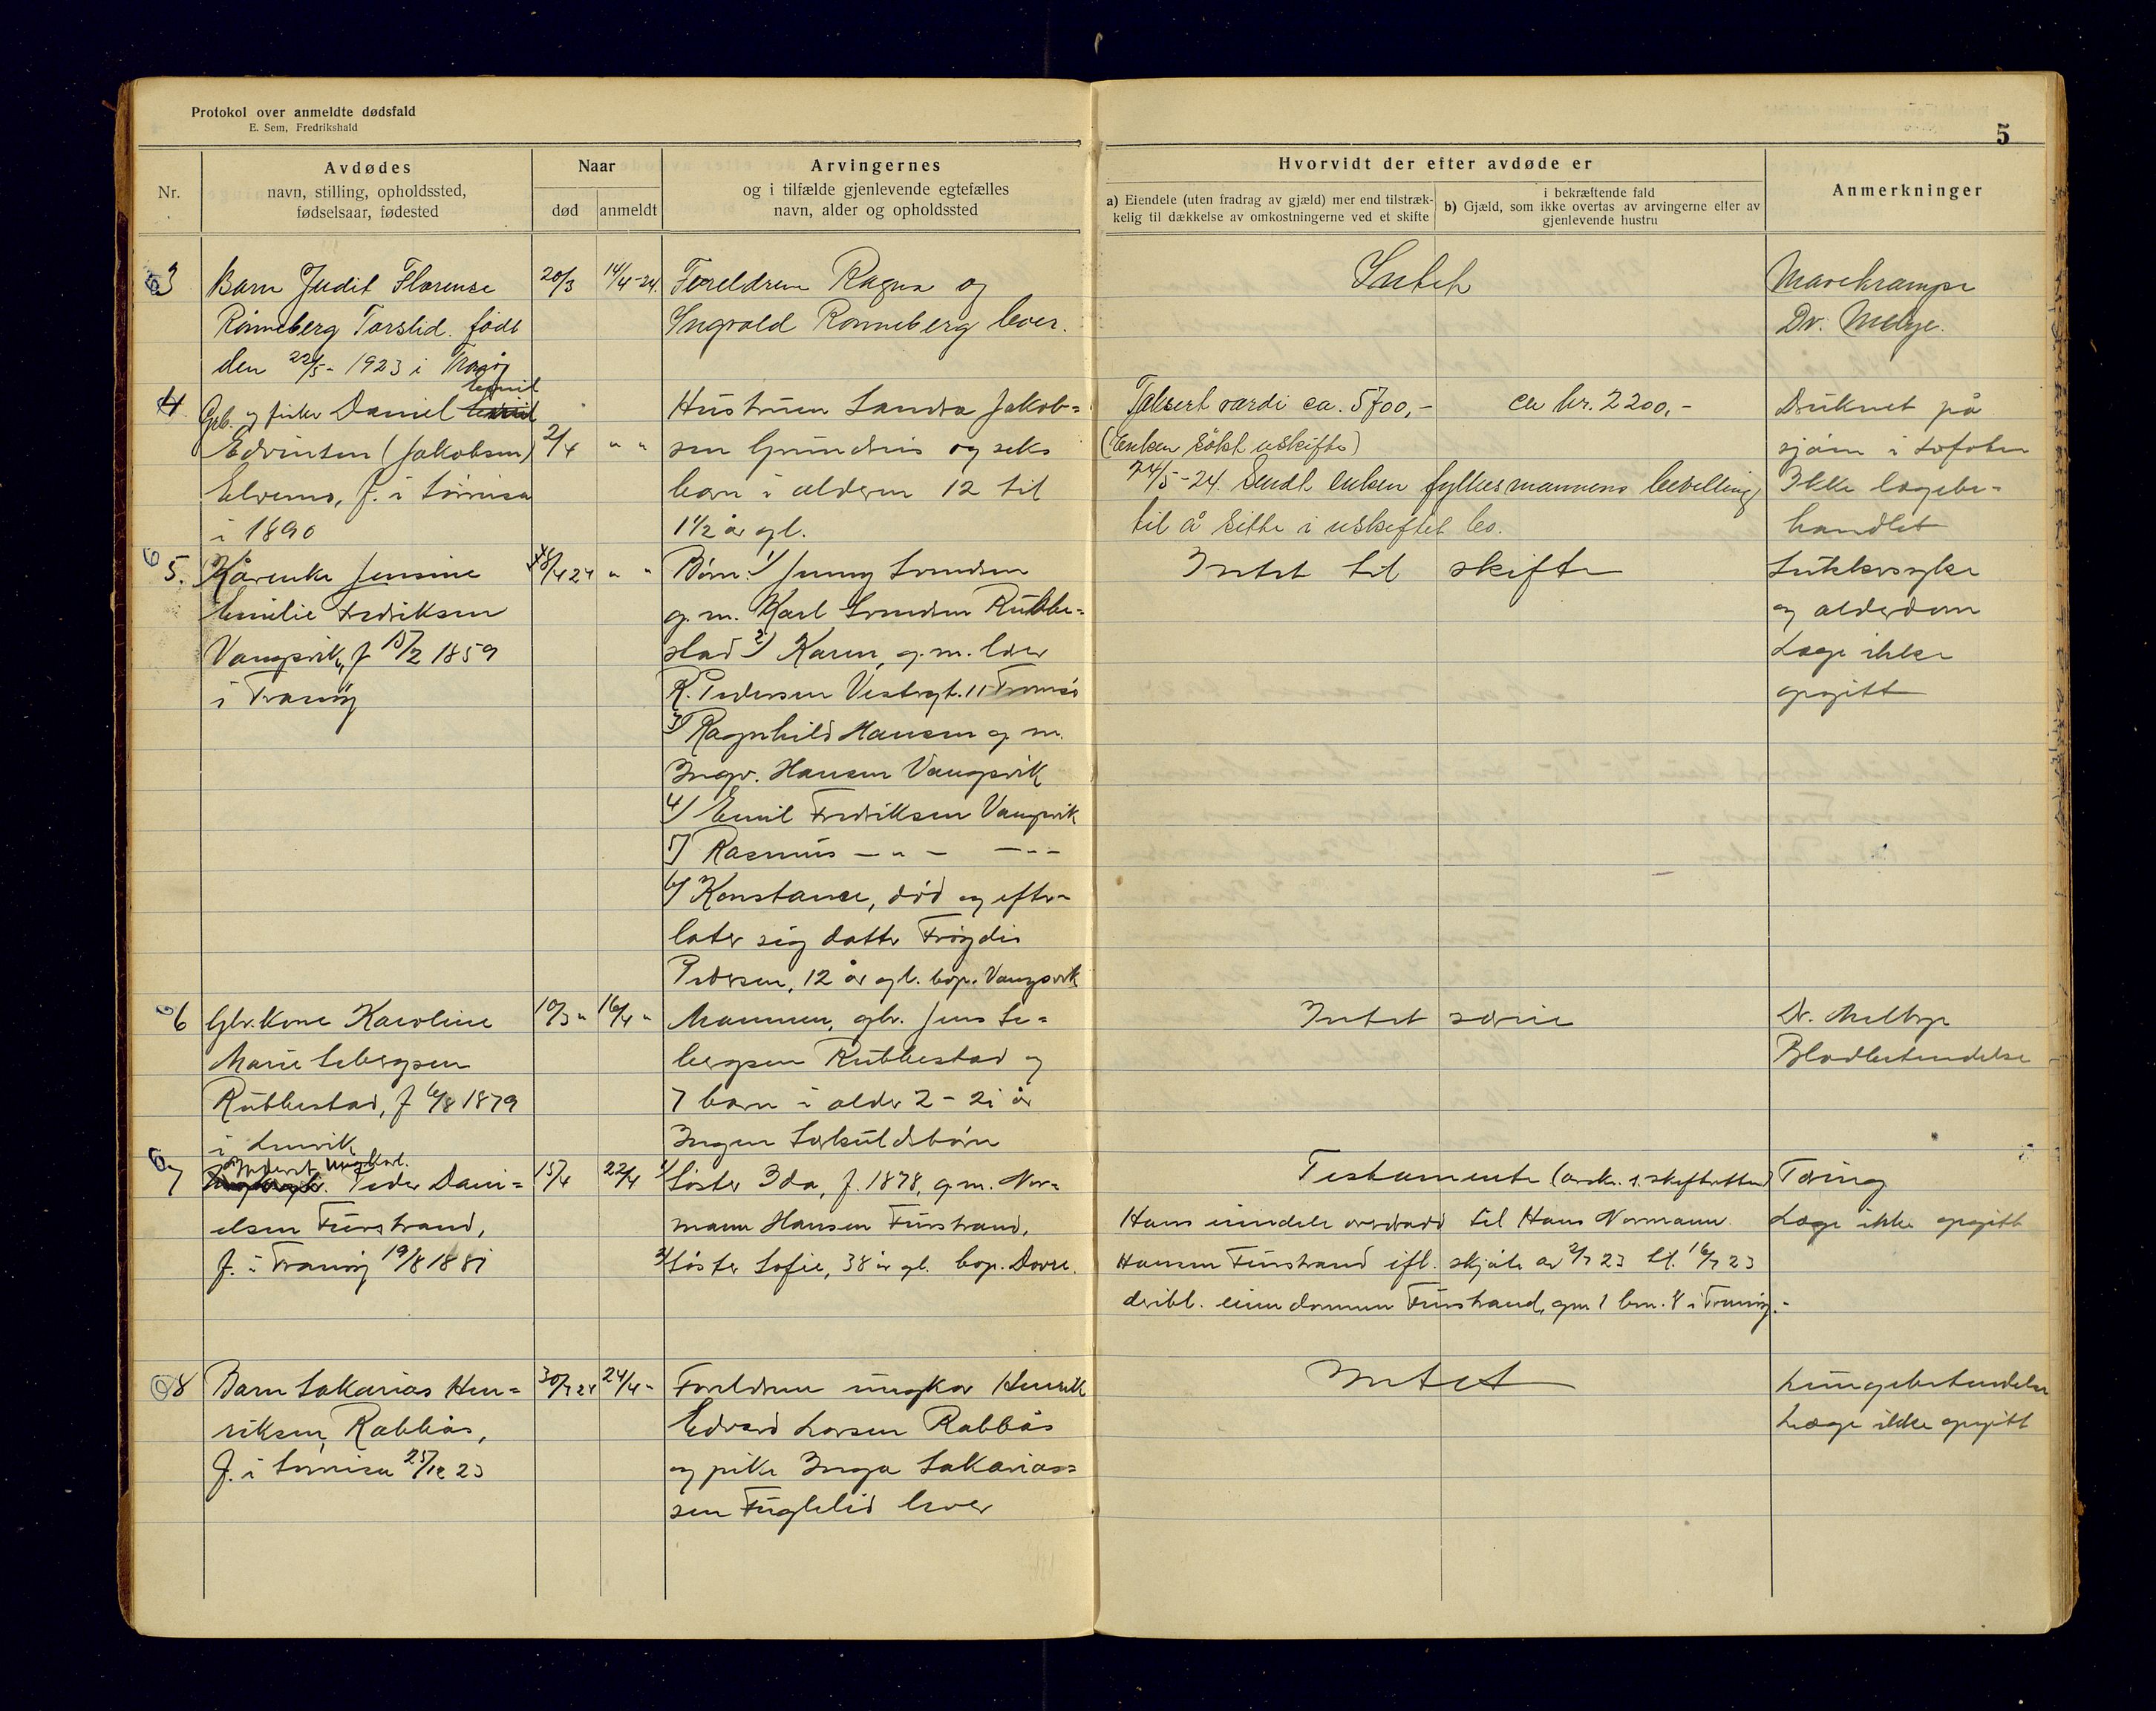 Protokol over anmeldte dødsfald
E. Sem, Fredrikshald
5
Nr.
Avdødes
navn, stilling, opholdssted,
fødselsaar, fødested
Naar
død
anmeldt
Arvingernes
og i tilfælde gjenlevende egtefælles
navn, alder og opholdssted
Hvorvidt der efter avdøde er
a) Eiendele (uten fradrag av gjæld) mer end tilstræk-
kelig til dækkelse av omkostningerne ved et skifte
i bekræftende fald
b) Gjæld, som ikke overtas av arvingerne eller av
gjenlevende hustru
Anmerkninger
3
Barn Judit Florense
Rønneberg Torslid. født
den 22/5 - 1923 i Tranøy
20/3
14/4-24.
Foreldrene Ragna og
Ingvald Rønneberg lever.
Intet
Mavekrampe
Dr. Melbye.
4
Grb. og fisker Daniel
Edvinsen (Jakobsen)
Elvenes, f. i Sørreisa
i 1890
2/4
" "
Hustruen Sandra Jakob=
sen Grundnes og seks
barn i alderen 12 til
1 1/2 år gl.
Taksert værdi ca. 5700,-
ca kr. 2200,-
(Enken søkt uskifte)
24/5-24. Sendt enken fylkesmannens bevilling
til å sitte i uskiftet bo.
Druknet på
sjøen i Lofoten
Ikke lægebe-
handlet
5.
Kårenke Jensine
Emilie Fredriksen
Vangsvik, f 15/2 1859
i Tranøy
/4 24
" "
Børn: 1) Jenny Svendsen
g. m. Karl Svendsen Rubbe=
stad 2) Karen, g. m. Iver
K. Pedersen Vestregt. 11 Tromsø
3) Ragnhild Hansen g m.
Ingv. Hansen Vangsvik
4) Emil Fredriksen Vangsvik
5) Rasmus — " — — " —
6) Konstance, død og efter-
later sig datter Frøydis
Pedersen, 12 år gl. bop. Vangsvik
Intet til skifte
Sukkersyke
og alderdom
Læge ikke
opgitt
6
Gbr. kone Karoline
Marie Sebergsen
Rubbestad, f 6/8 1879
i Lenvik
10/3 "
16/4 "
Mannen, gbr. Jens Se=
bergsen Rubbestad og
7 barn i alder 2 - 21 år
Ingen Særkuldsbørn
Intet særeie
Dr. Melbye
Blodbetendelse
7
Inderst Ungkarl.
Peder Dani=
elsen Furstrand,
f. i Tranøy 19/8 1881
15/4
22/4
1) Søster Ida, f. 1878, g m. Nor=
mann Hansen Furstrand,
2) Søster Sofie, 38 år gl. bop. Dovre.
Testamente
Hans eiendele overdradd til Hans Normann
Hansen Furstrand ifl. skjøte av 2/7 23 tl. 16/7 23
deribl. eiendommen Furstrand, gnr 1 brn. 8 i Tranøy.-
Tæring
Læge ikke opgitt
8
Barn Sakarias Hen=
riksen, Rabbås,
f. i Sørreisa 25/12 23
24
24/4 -
Foreldrene ungkar Henrik
Edvard Larsen Rabbås
og pike Inga Sakarias=
sen Fuglelid lever
Intet
Lungebetendelse
Læge ikke opgitt